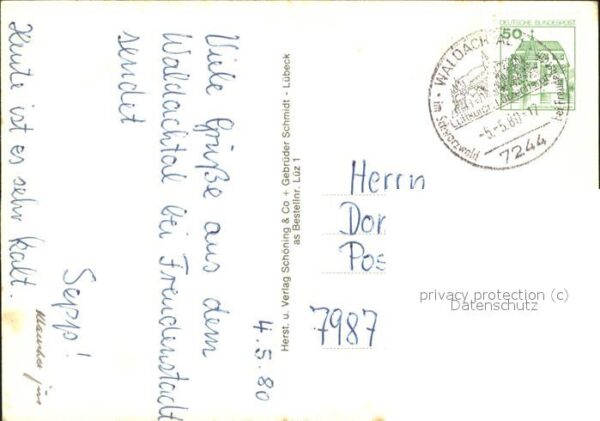 4.5.80
Viele Grüße aus dem
Waldachtal bei Freudenstadt
sendet
Sepp!
Heute ist es sehr kalt.
Herst. u. Verlag Schöning & Co + Gebrüder Schmidt - Lübeck
as Bestellnr. Lüz 1
50
DEUTSCHE BUNDESPOST
WALDACHTAL
im Schwarzwald
-5.-5.80-17
7244
Herrn
Dor
Pos
7987
privacy protection (c)
Datenschutz